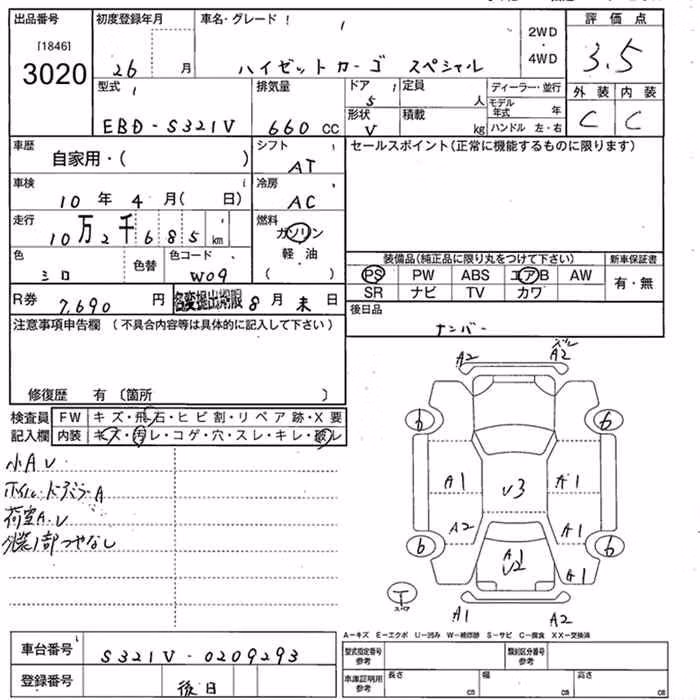 出品番号 初度登録年月 車名・グレード 評価点
[1846] 3020
26 月 ハイゼットカーゴ スペシャル
2WD 4WD
3.5
型式 排気量 ドア 定員 ディーラー・並行 外装 内装
EBD-S321V 660 CC 5 人
形状 積載 モデル年式 年
V kg ハンドル 左・右
C C
車歴 シフト セールスポイント(正常に機能するものに限ります)
自家用・( ) AT
車検 冷房
10 年 4 月( 日) AC
走行 燃料
10 万 2 千 6 8 5 km ガソリン
軽油
( )
色 色替 色コード
シロ W09
装備品(純正品に限り丸をつけて下さい) 新車保証書
PS PW ABS エアB AW 有・無
SR ナビ TV カワ
R券 7,690 円 名変提出期限 8 月 末 日
後日品
ナンバー
注意事項申告欄 (不具合内容等は具体的に記入して下さい)
修復歴 有 〔箇所 〕
検査員 FW キズ・飛石・ヒビ割・リペア跡・X要
記入欄 内装 キズ・汚レ・コゲ・穴・スレ・キレ・破レ
小A.U
ホイル・ドアミラーA
荷室A.U
外装1部つやなし
A2 A2
6 6
A1 U3 A1
A2 A1
6 A1 U2 6
A1
T スペア
A1 A2
A-キズ E-エクボ U-凹み W-補修跡 S-サビ C-腐食 XX-交換済
車台番号 S321V-0209293
型式指定番号 参考 類別区分番号 参考
登録番号 後日
車庫証明用 参考 長さ cm 幅 cm 高さ cm